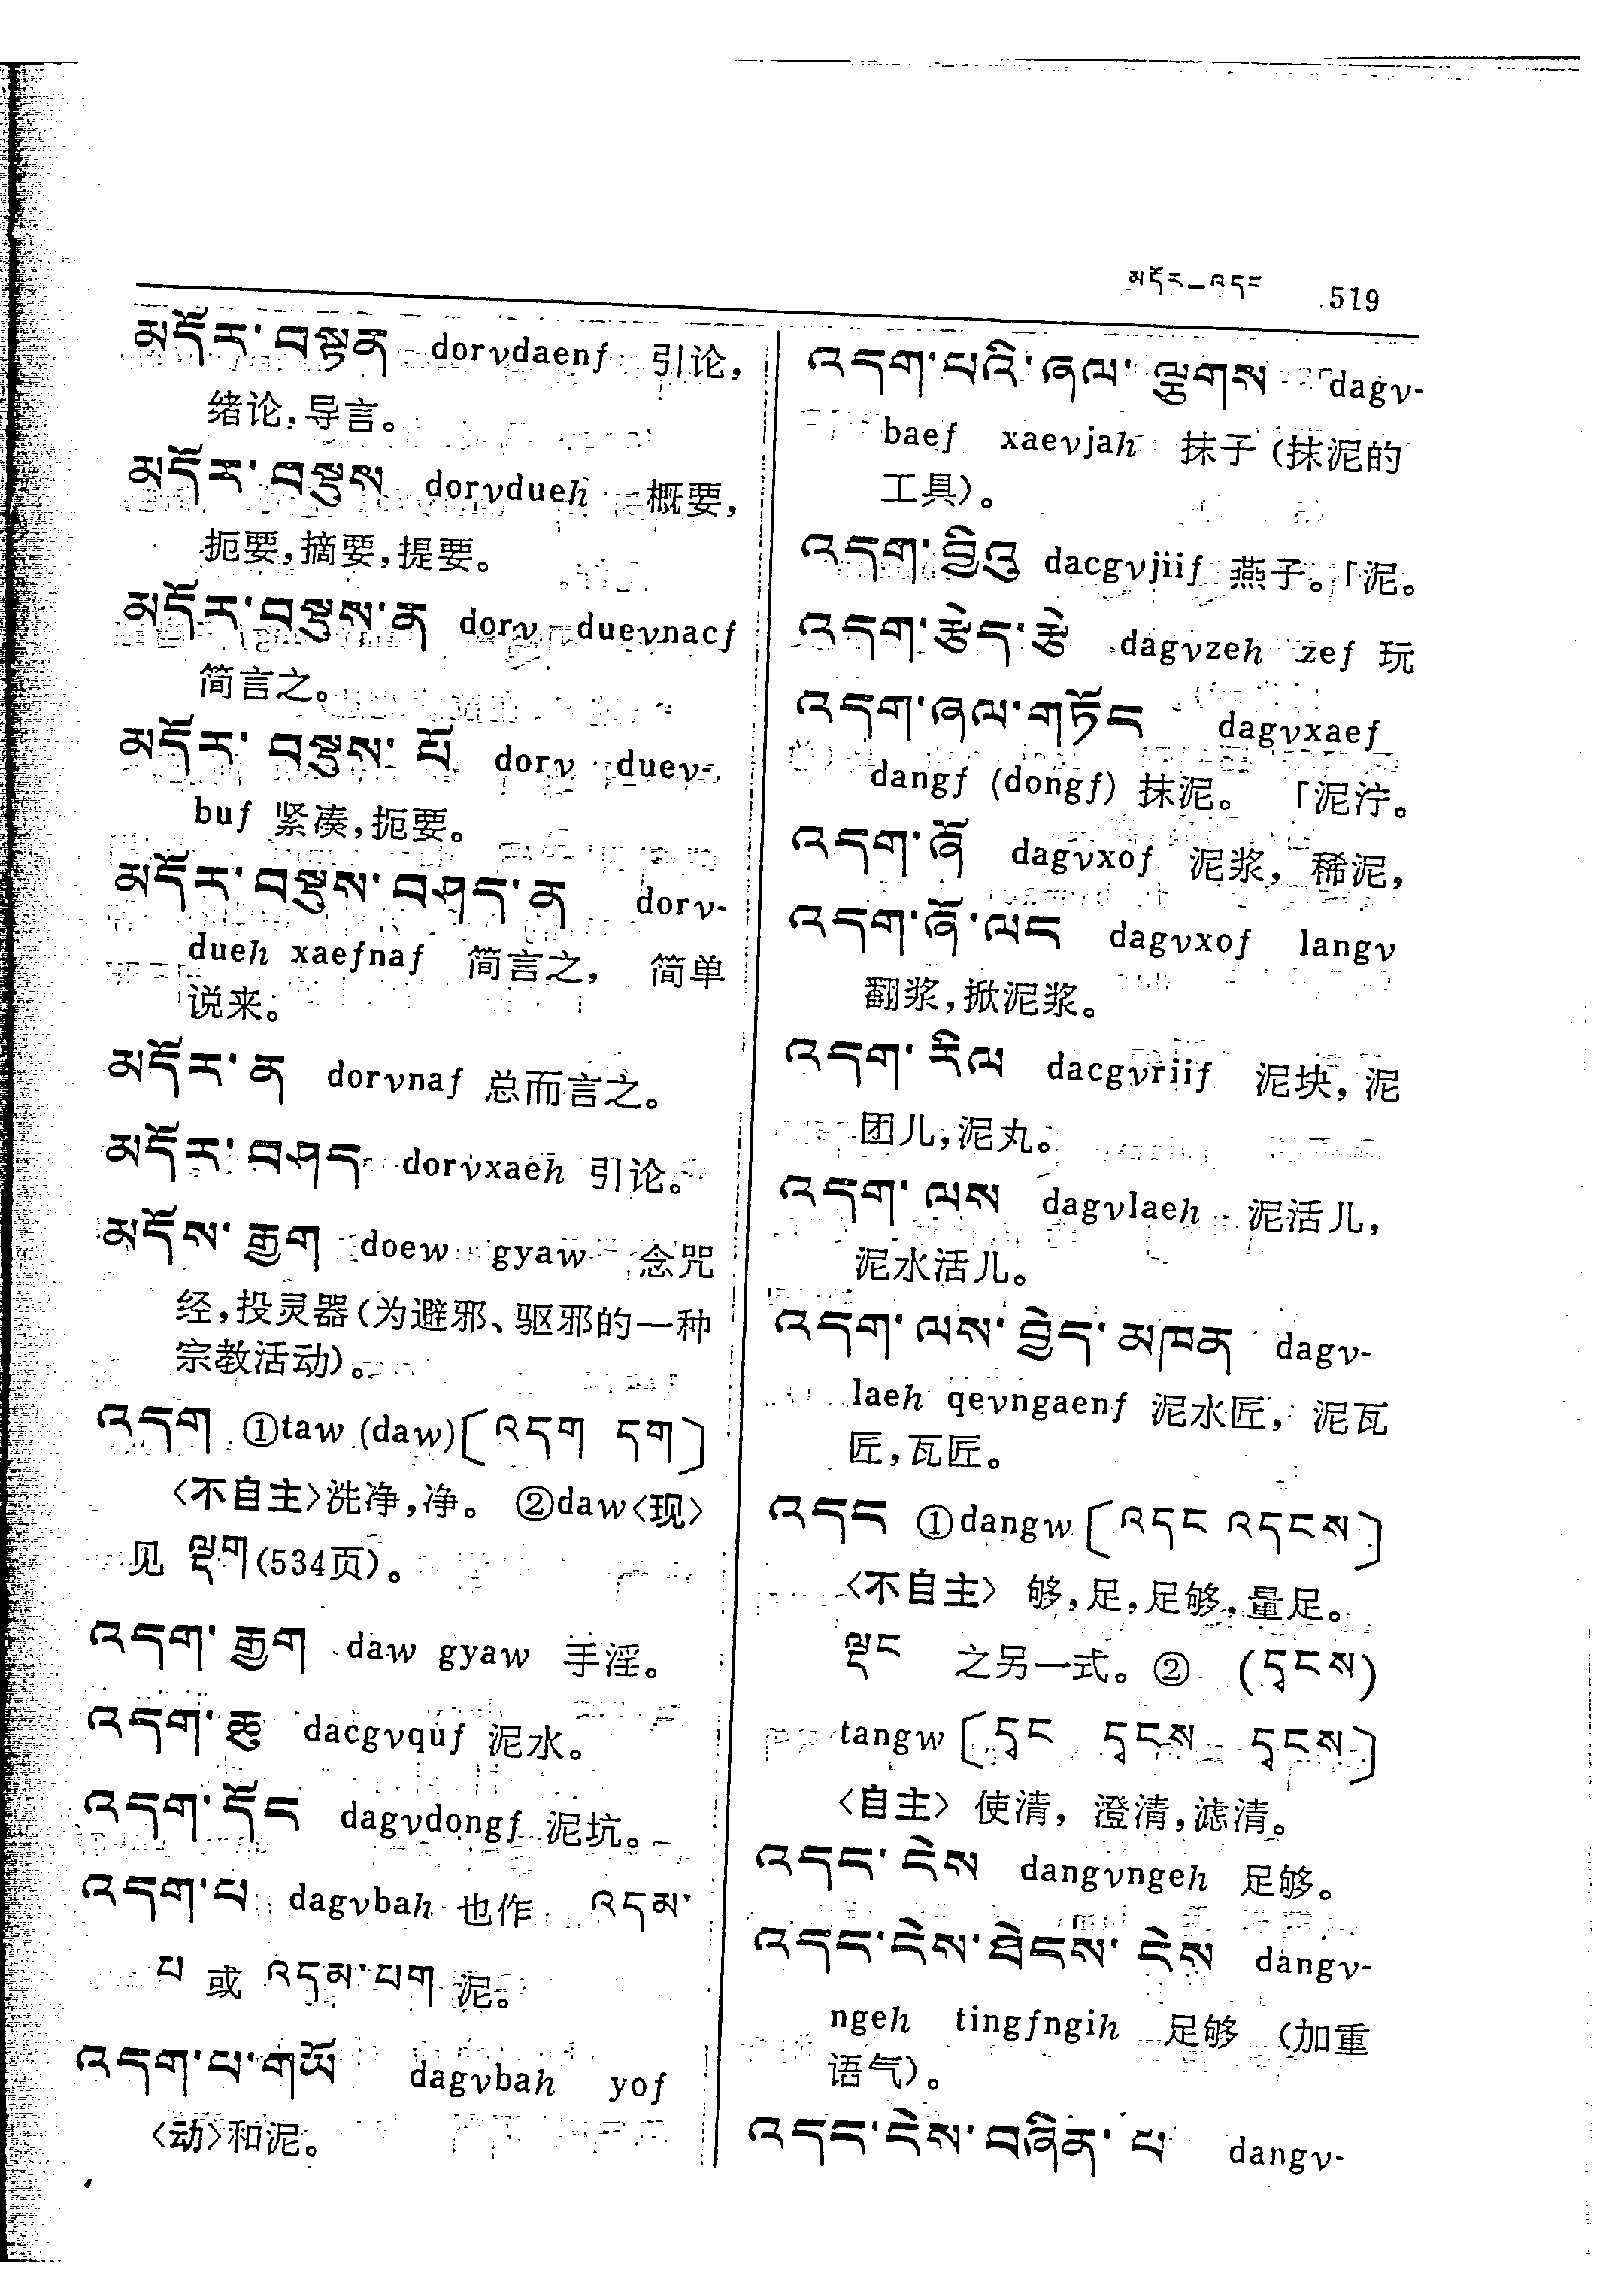 མདོར—འདང 519
མདོར་བསྟན dorvdaenf 引论,
绪论,导言。
མདོར་བསྡུས dorvdueh 概要,
扼要,摘要,提要。
མདོར་བསྡུས་ན dorv duevnacf
简言之。
མདོར་བསྡུས་པོ dorv duev-
buf 紧凑,扼要。
མདོར་བསྡུས་བཤད་ན dorv-
dueh xaefnaf 简言之, 简单
说来。
མདོར་ན dorvnaf 总而言之。
མདོར་བཤད dorvxaeh 引论。
མདོས་རྒྱག doew gyaw 念咒
经,投灵器(为避邪、驱邪的一种
宗教活动)。
འདག ①taw (daw)〔འདག དག〕
〈不自主〉洗净,净。 ②daw〈现〉
见 ལྡག(534页)。
འདག་རྒྱག daw gyaw 手淫。
འདག་ཆུ dacgvquf 泥水。
འདག་དོང dagvdongf 泥坑。
འདག་པ dagvbah 也作 འདམ་
པ 或 འདམ་པག 泥。
འདག་པ་གཡོ dagvbah yof
〈动〉和泥。
འདག་པའི་ཞལ་ལྕགས dagv-
baef xaevjah 抹子(抹泥的
工具)。
འདག་བྱིའུ dacgvjiif 燕子。「泥。
འདག་རྩེད་རྩེ dagvzeh zef 玩
འདག་ཞལ་གཏོང dagvxaef
dangf (dongf) 抹泥。 「泥泞。
འདག་ཞོ dagvxof 泥浆, 稀泥,
འདག་ཞོ་ལང dagvxof langv
翻浆,掀泥浆。
འདག་རིལ dacgvriif 泥块, 泥
团儿,泥丸。
འདག་ལས dagvlaeh 泥活儿,
泥水活儿。
འདག་ལས་བྱེད་མཁན dagv-
laeh qevngaenf 泥水匠, 泥瓦
匠,瓦匠。
འདང ①dangw〔འདང འདངས〕
〈不自主〉 够,足,足够,量足。
ལྡང 之另一式。② (དྭངས)
tangw〔དྭང དྭངས དྭངས〕
〈自主〉 使清, 澄清,滤清。
འདང་ངེས dangvngeh 足够。
འདང་ངེས་ཐེངས་ངེས dangv-
ngeh tingfngih 足够 (加重
语气)。
འདང་ངེས་བཞིན་པ dangv-